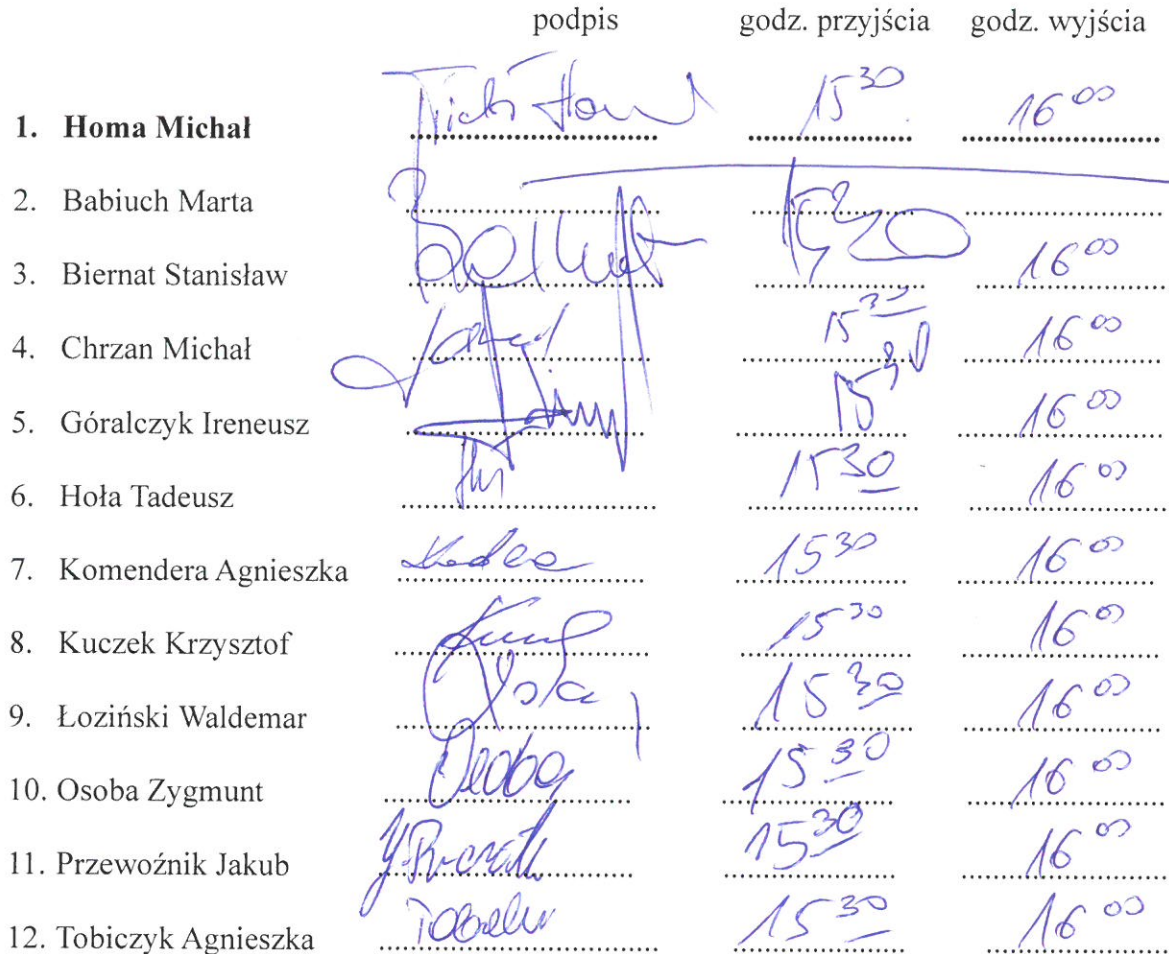 podpis godz. przyjścia godz. wyjścia
1. Homa Michał 15 30 16 00
2. Babiuch Marta
3. Biernat Stanisław 15 30 16 00
4. Chrzan Michał 15 30 16 00
5. Góralczyk Ireneusz 15 30 16 00
6. Hoła Tadeusz 15 30 16 00
7. Komendera Agnieszka 15 30 16 00
8. Kuczek Krzysztof 15 30 16 00
9. Łoziński Waldemar 15 30 16 00
10. Osoba Zygmunt 15 30 16 00
11. Przewoźnik Jakub 15 30 16 00
12. Tobiczyk Agnieszka 15 30 16 00